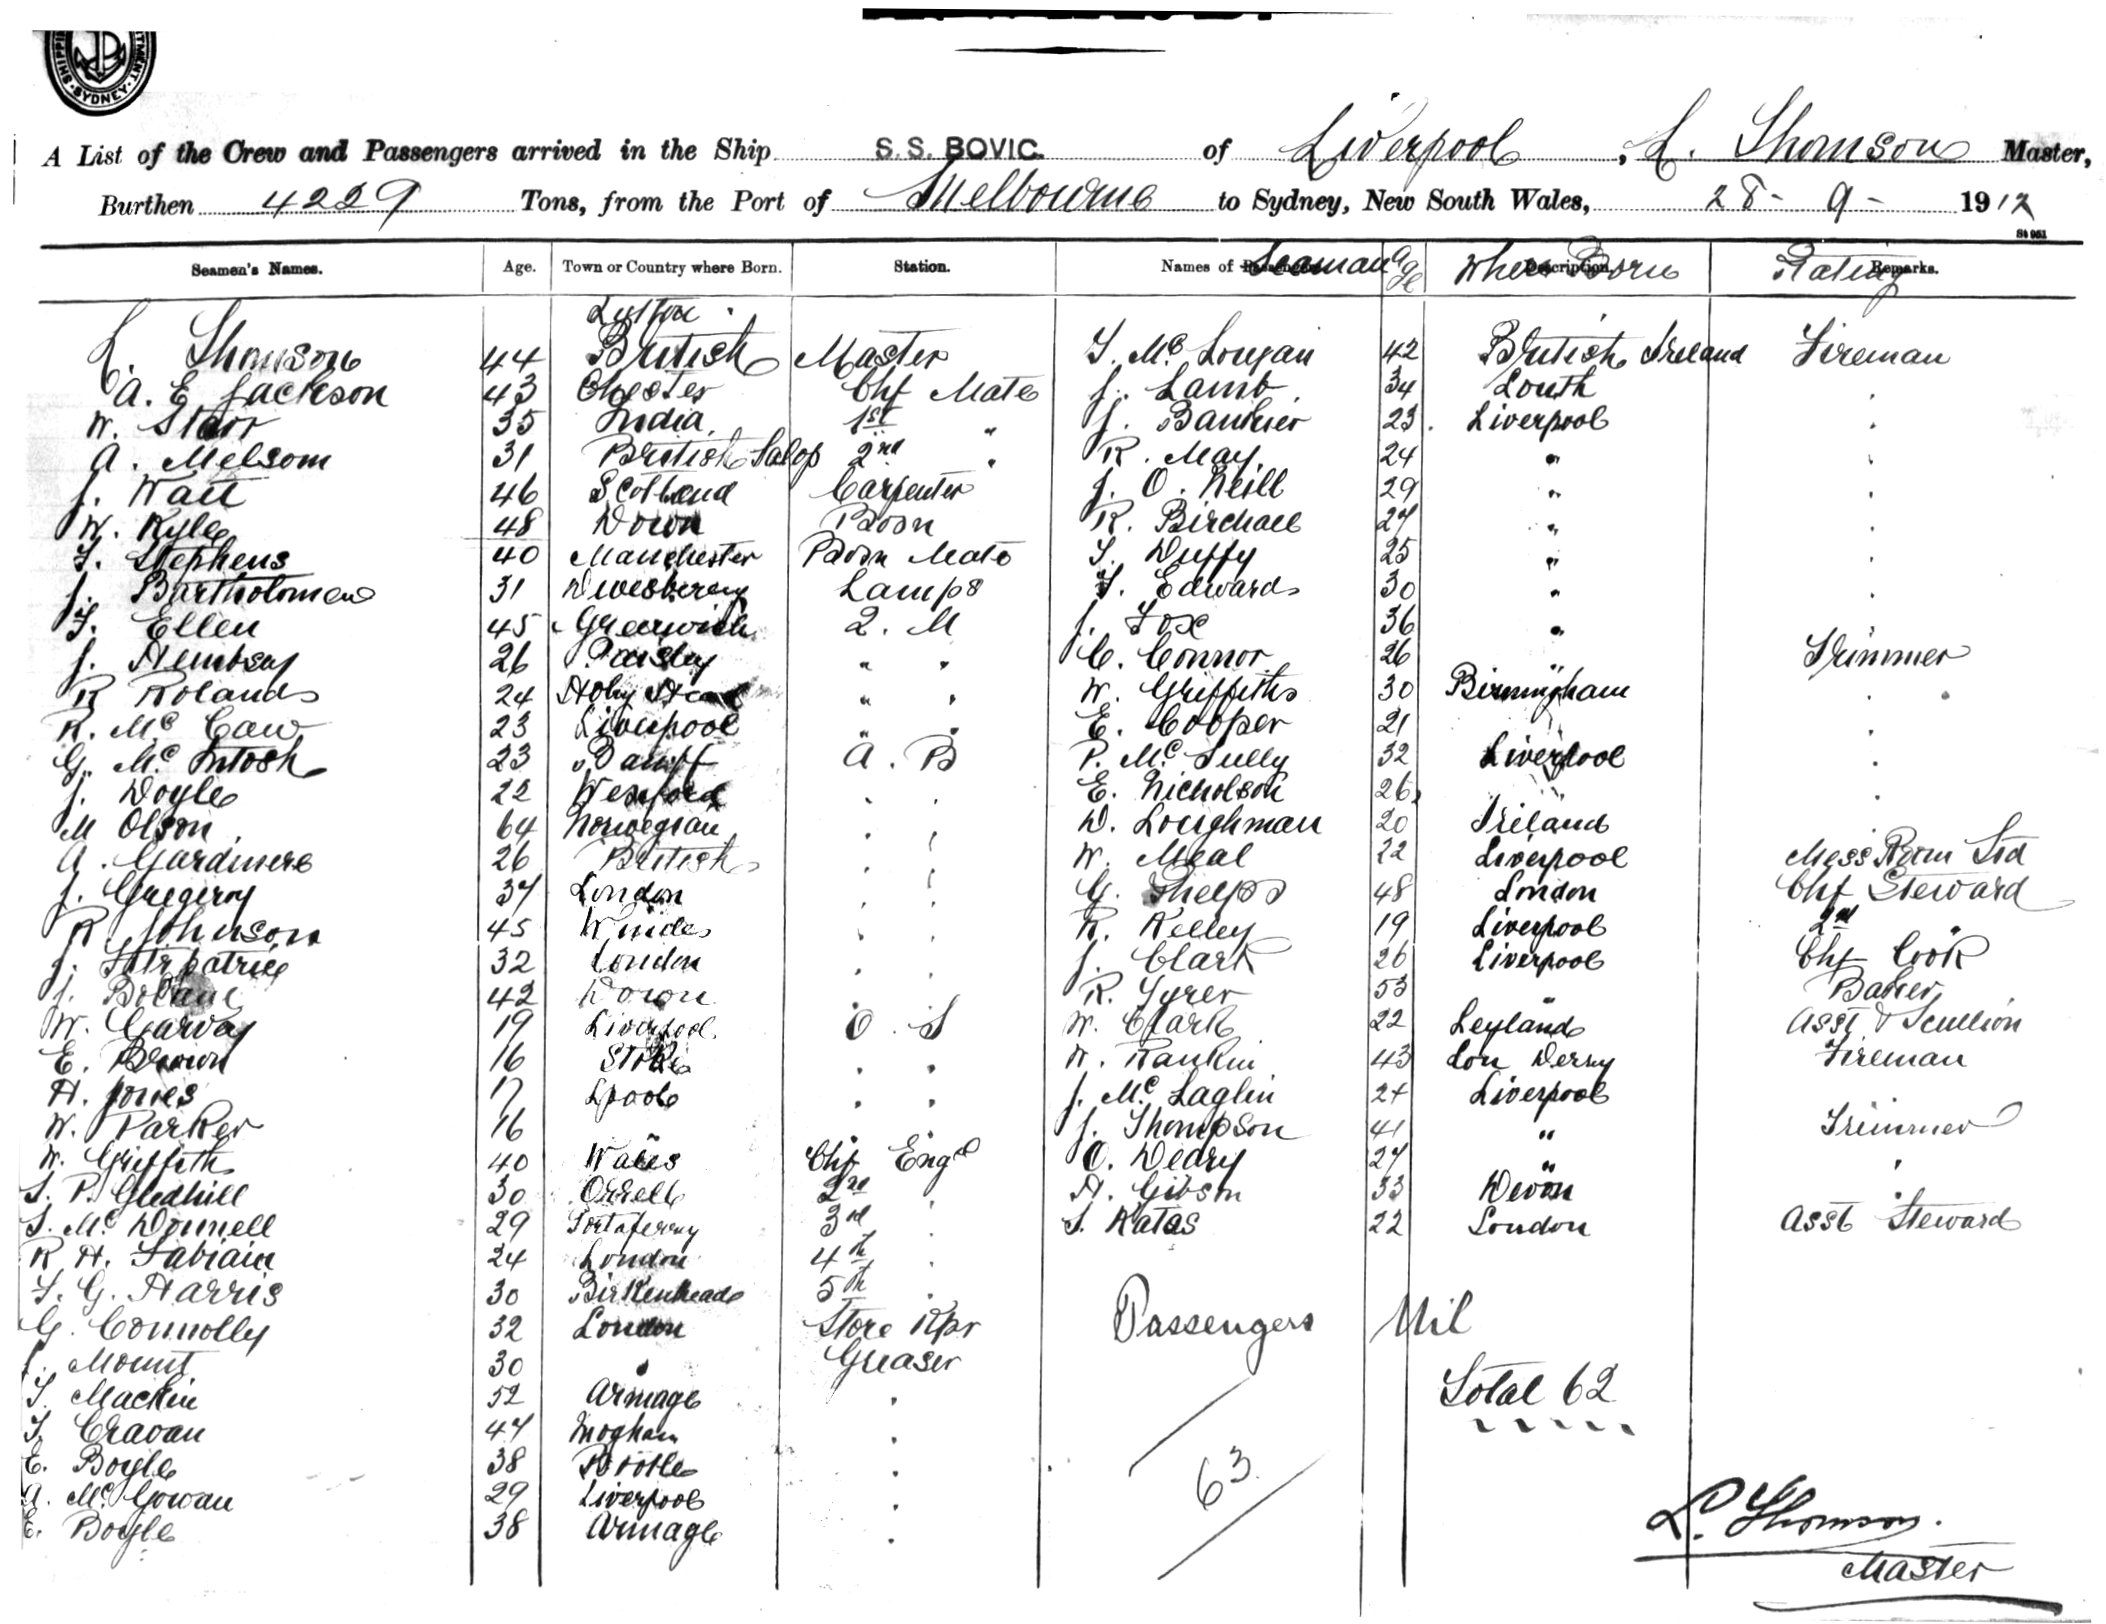 SHIPPING SYDNEY
A List of the Crew and Passengers arrived in the Ship S.S. BOVIC. of Liverpool, L. Thomson Master,
Burthen 4229 Tons, from the Port of Melbourne to Sydney, New South Wales, 28-9-1912
St 951
Seamen's Names. Age. Town or Country where Born. Station. Names of Passengers Seaman Age Description. Where Born Remarks. Rating
L. Thomson 44 British Master T. Mc Lougan 42 British Ireland Fireman
A. E. Jackson 43 Chester Chf Mate J. Lamb 34 Louth
W. Starr 35 India. 1st " J. Bankier 23. Liverpool
A. Melsom 31 British Salop 2nd " R. May 24 "
J. Watt 46 Scotland Carpenter J. O. Neill 29 "
W. Kyle 48 Down Bosn R. Birchall 27 "
T. Stephens 40 Manchester Bosn Mate T. Duffy 25 "
J. Bartholomew 31 Lamps T. Edwards 30 "
T. Ellen 45 Greenwich 2. M J. Fox 36 "
J. 26 Paisley " " C. Connor 26 " Trimmer
R Rolands 24 Holy Head " " W. Griffiths 30 Birmingham
R. Mc Caw 23 Liverpool " " E. Cooper 21 "
G. Mc Intosh 23 Banff A. B P. Mc Sully 32 Liverpool
J. Doyle 22 Wexford E. Nicholson 26 "
M Olson 64 Norwegian D. Loughman 20 Ireland
A. Gardiner 26 British W. Meal 22 Liverpool Mess Room Std
J. Gregory 37 London G. Phelps 48 London Chf Steward
R. Johnson 45 Widnes R. Kelley 19 Liverpool 2nd "
J. Fitzpatrick 32 London J. Clark 26 Liverpool Chf Cook
J. 42 Down R. Tyrer 53 " Baker
W. Garvay 19 Liverpool O. S W. Clark 22 Leyland Asst & Scullion
E. Brown 16 Stoke W. Rankin 43 Lon Derry Fireman
H. Jones 17 Lpool J. Mc Laglin 24 Liverpool
W. Parker 16 " J. Thompson 41 " Trimmer
W. Griffith 40 Wales Chf Engr O. Deary 27 "
S. P. Gledhill 30 Orrell 2nd A. Gibson 33 Devon
S. Mc Donnell 29 Portaferry 3rd S. Katas 22 London Asst Steward
R H. Fabiain 24 London 4th
T. G. Harris 30 Birkenhead 5th
G. Connolly 32 London Store Kpr Passengers Nil
J. Mount 30 " Greaser
T. Mackin 52 Armagh Total 62
T. Cravan 47
E. Boyle 38 Bootle 63
A. Mc Gowan 29 Liverpool
E. Boyle 38 Armagh
L. Thomson.
Master